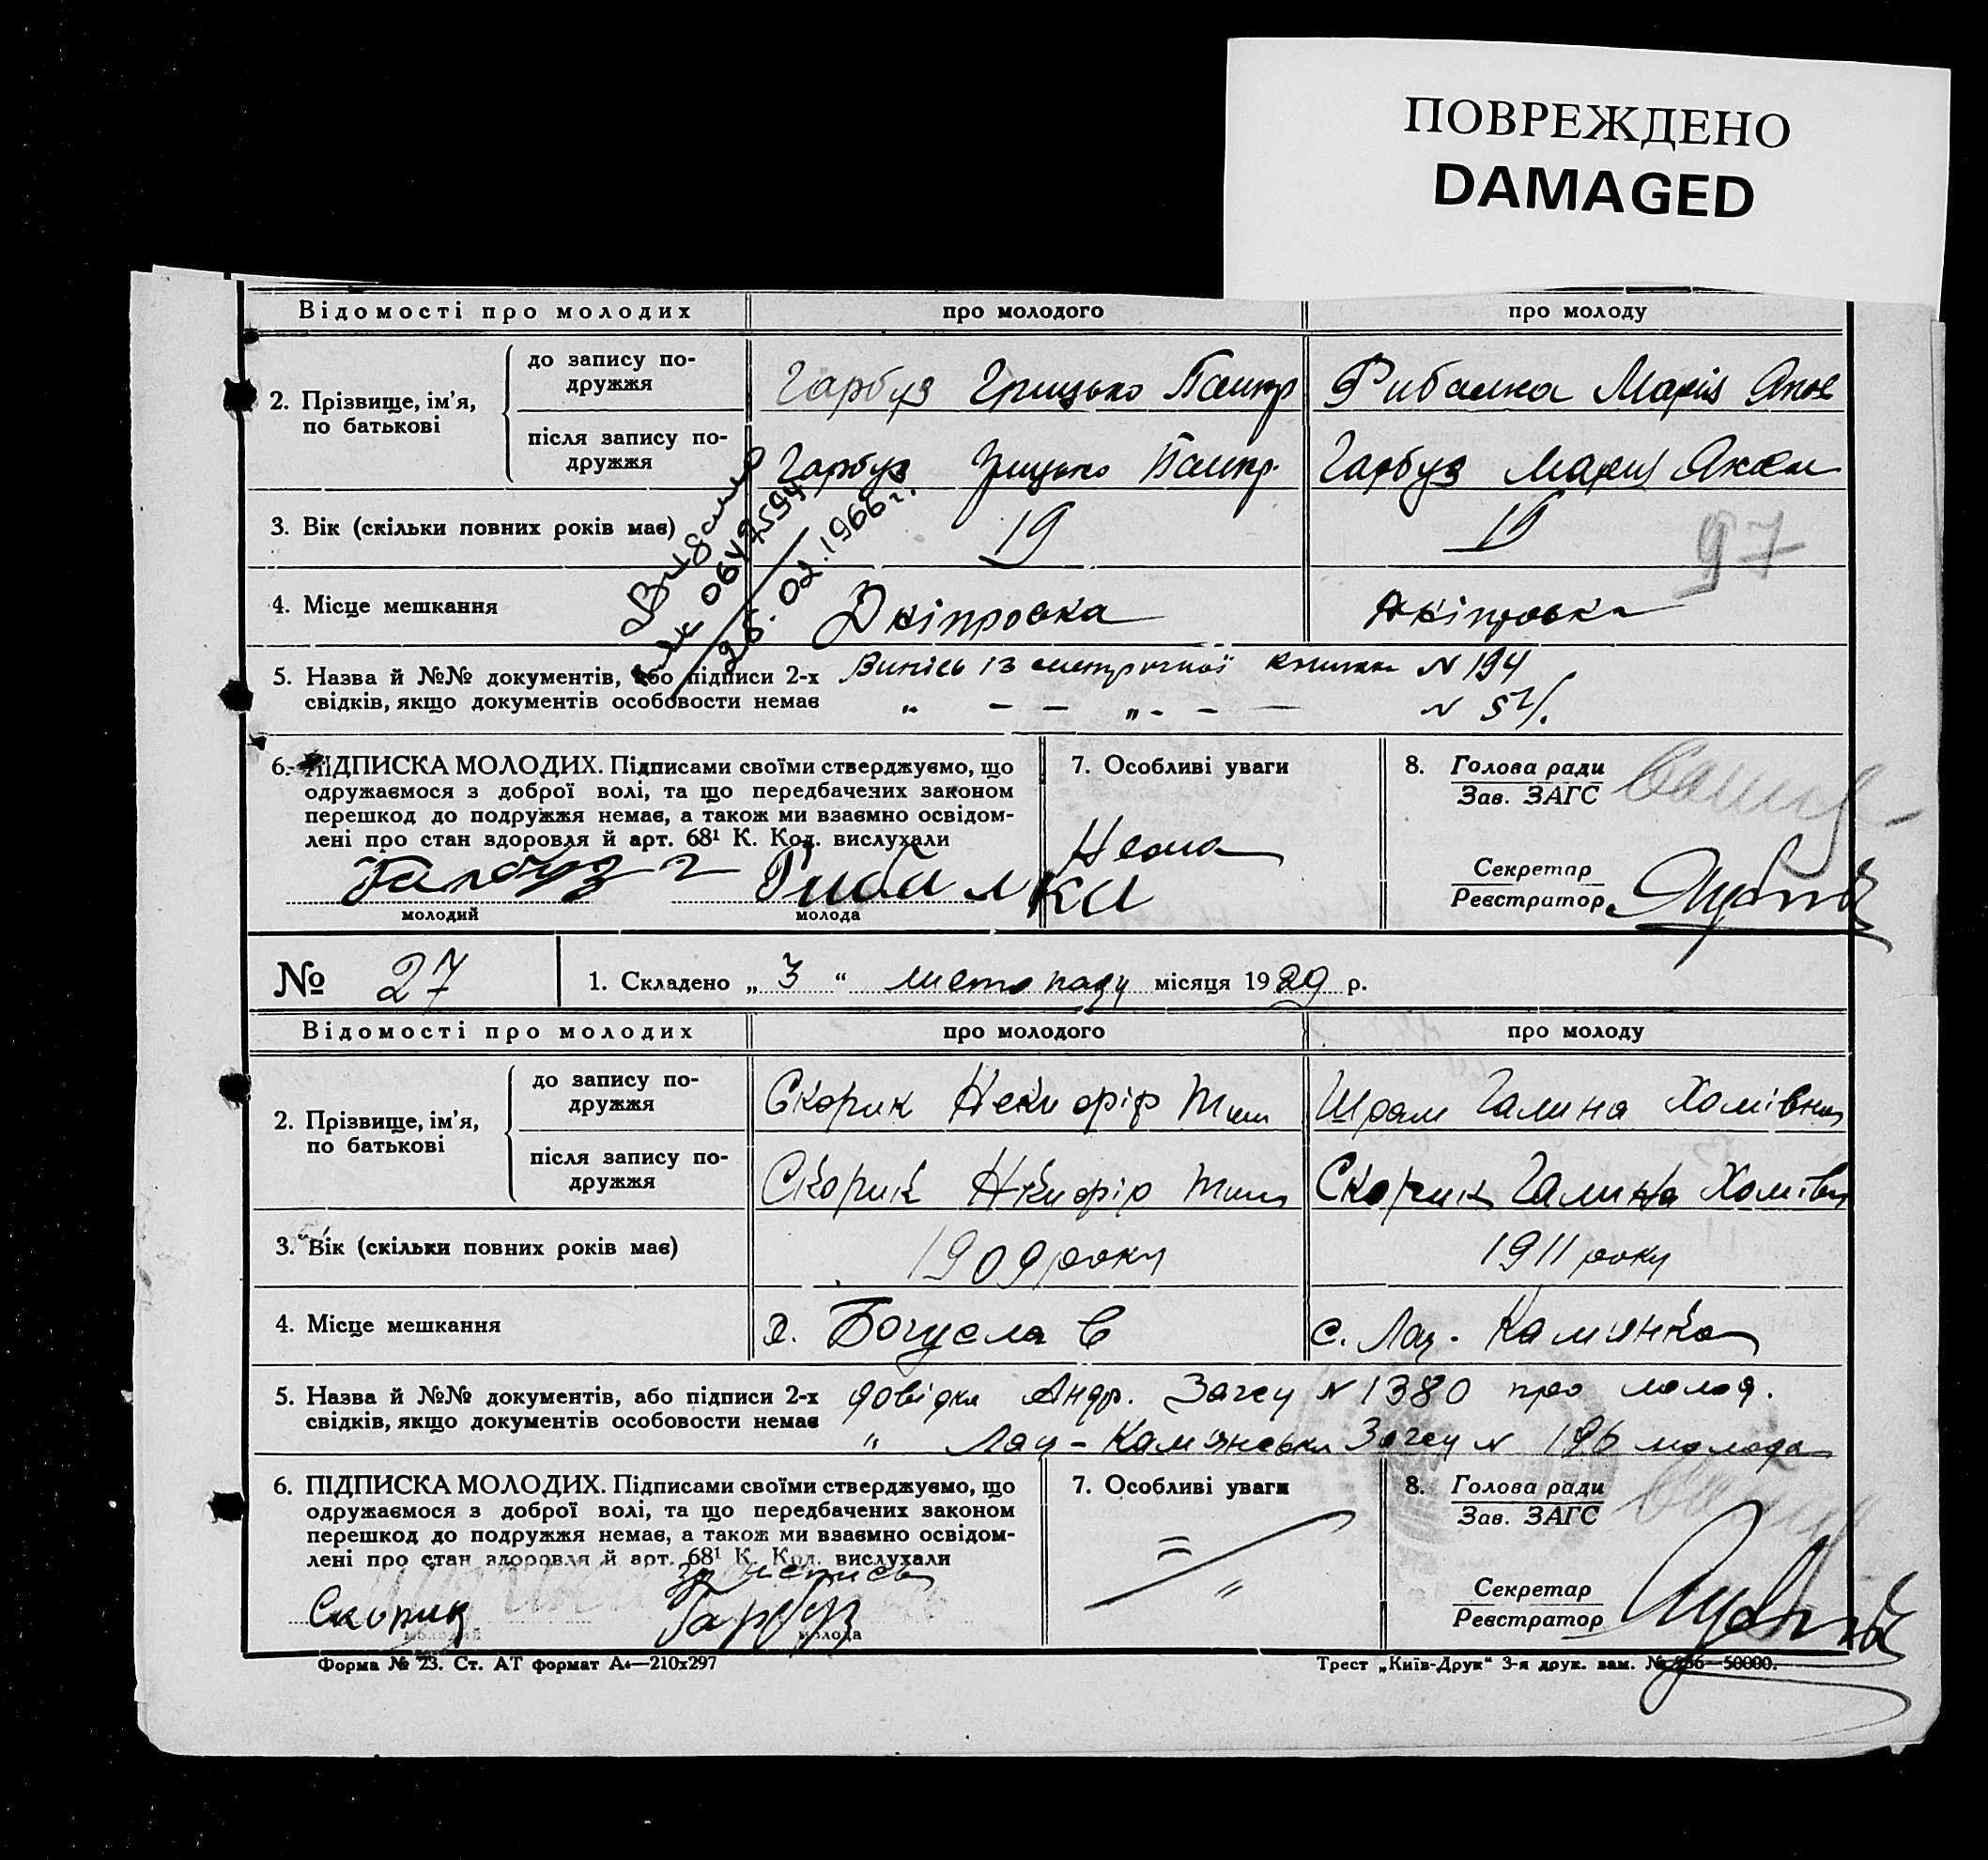 ПОВРЕЖДЕНО
DAMAGED
Відомості про молодих
про молодого
про молоду
2. Прізвище, ім'я, по батькові
до запису подружжя
Гарбуз Грицько Панкр
Рибалка Марія Яков
після запису подружжя
Гарбуз Грицько Панкр.
Гарбуз Марія
3. Вік (скільки повних років має)
19
19
97
0647594
25.02.1966 г.
4. Місце мешкання
Дніпровка
Дніпровка
5. Назва й №№ документів, або підписи 2-х
свідків, якщо документів особовости немає
Випись із метричної книжки N 194
„ – – „ – – – N 57/.
6. ПІДПИСКА МОЛОДИХ. Підписами своїми стверджуємо, що
одружаємося з доброї волі, та що передбачених законом
перешкод до подружжя немає, а також ми взаємно освідом-
лені про стан здоровля й арт. 68¹ К. Код. вислухали
Гарбуз Г
Рибалка
молодий
молода
7. Особливі уваги
Нема
8. Голова ради
Зав. ЗАГС
Секретар
Реєстратор
№ 27
1. Складено „ 3 “ листопаду місяця 1929 р.
Відомості про молодих
про молодого
про молоду
2. Прізвище, ім'я, по батькові
до запису подружжя
Скорик Некифір Тим
Шрам Галина Хомівна
після запису подружжя
Скорик Нікифір Тим
Скорик Галина Хомівн
3. Вік (скільки повних років має)
1909 року
1911 року
4. Місце мешкання
с. Богуслав
с. Лоц. Кам'янка
5. Назва й №№ документів, або підписи 2-х
свідків, якщо документів особовости немає
довідка Андр. Загсу N 1380 про молод.
„ Лоц-Кам'янська Загсу N 196 молода
6. ПІДПИСКА МОЛОДИХ. Підписами своїми стверджуємо, що
одружаємося з доброї волі, та що передбачених законом
перешкод до подружжя немає, а також ми взаємно освідом-
лені про стан здоровля й арт. 68¹ К. Код. вислухали
Скорик
Гарбуз
молодий
молода
7. Особливі уваги
8. Голова ради
Зав. ЗАГС
Секретар
Реєстратор
Форма № 23. Ст. АТ формат А₄—210х297
Трест „Київ-Друк“ 3-я друк. зам. № 50000.